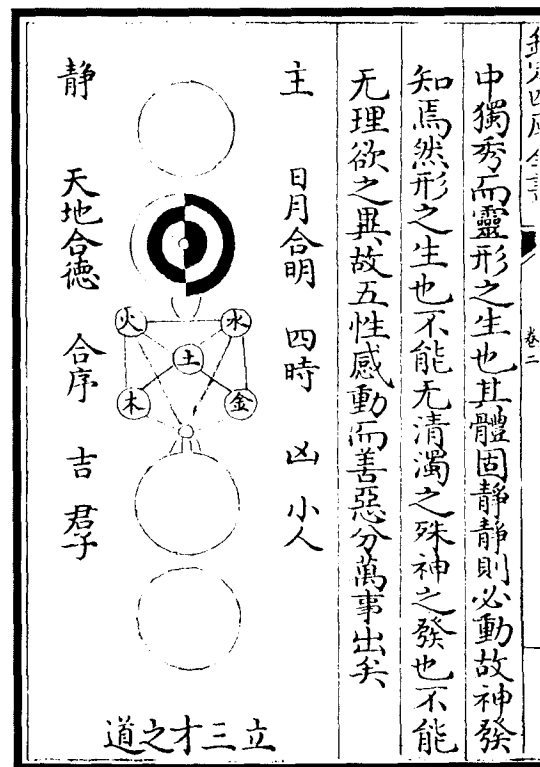 欽定四庫全書
卷二
中獨秀而靈形之生也其體固靜靜則必動故神發
知焉然形之生也不能无清濁之殊神之發也不能
无理欲之異故五性感動而善惡分萬事出矣
主　日月合明　四時　凶　小人
水
火
土
金
木
靜　天地合德　合序　吉　君子
立三才之道